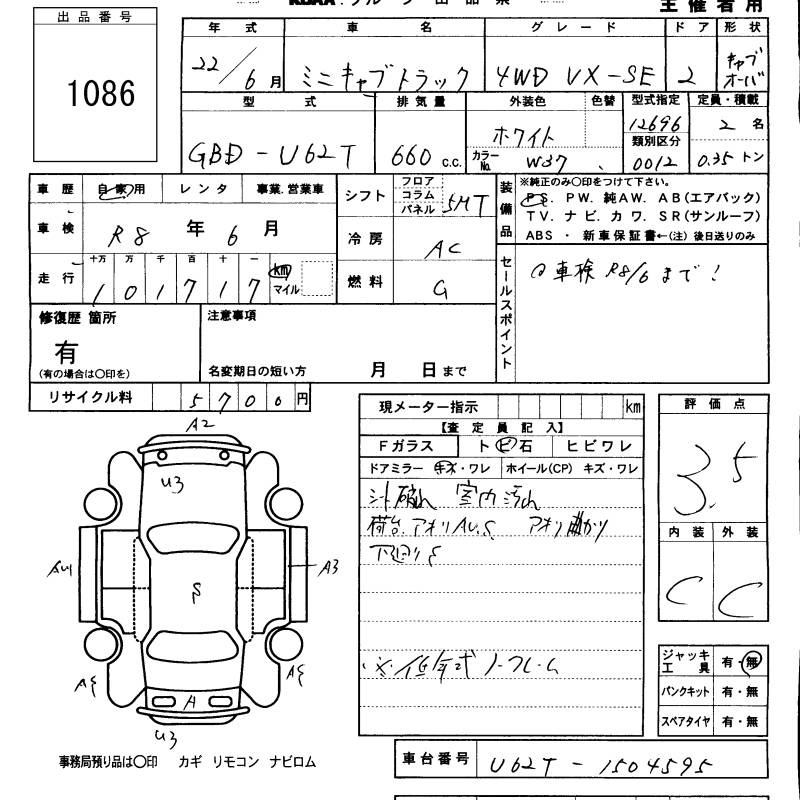 主催者用
出品番号
1086
年式 車名 グレード ドア 形状
22/6月 ミニキャブトラック 4WD VX-SE 2 キャブオーバ
型式 排気量 外装色 色替 型式指定 定員・積載
GBD-U62T 660 c.c. ホワイト 12696 2名
カラーNo. W37 類別区分 0012 0.35トン
車歴 自家用 レンタ 事業.営業車
車検 R8年6月
走行 十万 万 千 百 十 一
101717 km マイル
シフト フロア コラム パネル 5MT
冷房 AC
燃料 G
装備品 ※純正のみ〇印をつけて下さい。
PS. PW. 純AW. AB(エアバック)
TV. ナビ. カワ. SR(サンルーフ)
ABS ・ 新車保証書←(注) 後日送りのみ
セールスポイント
車検 R8/6まで!
修復歴 箇所
有
(有の場合は〇印を)
注意事項
名変期日の短い方 月 日まで
リサイクル料 5700円
現メーター指示 km
【査定員記入】
Fガラス ト ビ 石 ヒビワレ
ドアミラー キズ・ワレ ホイール(CP) キズ・ワレ
シート破れ 室内汚れ
荷台.アオリAU.S アオリ曲がり
下廻りS
評価点
3.5
内装 外装
C C
A2
U3
A3
S
A
U3
ジャッキ工具 有・無
パンクキット 有・無
スペアタイヤ 有・無
事務局預り品は〇印 カギ リモコン ナビロム
車台番号 U62T-1504595